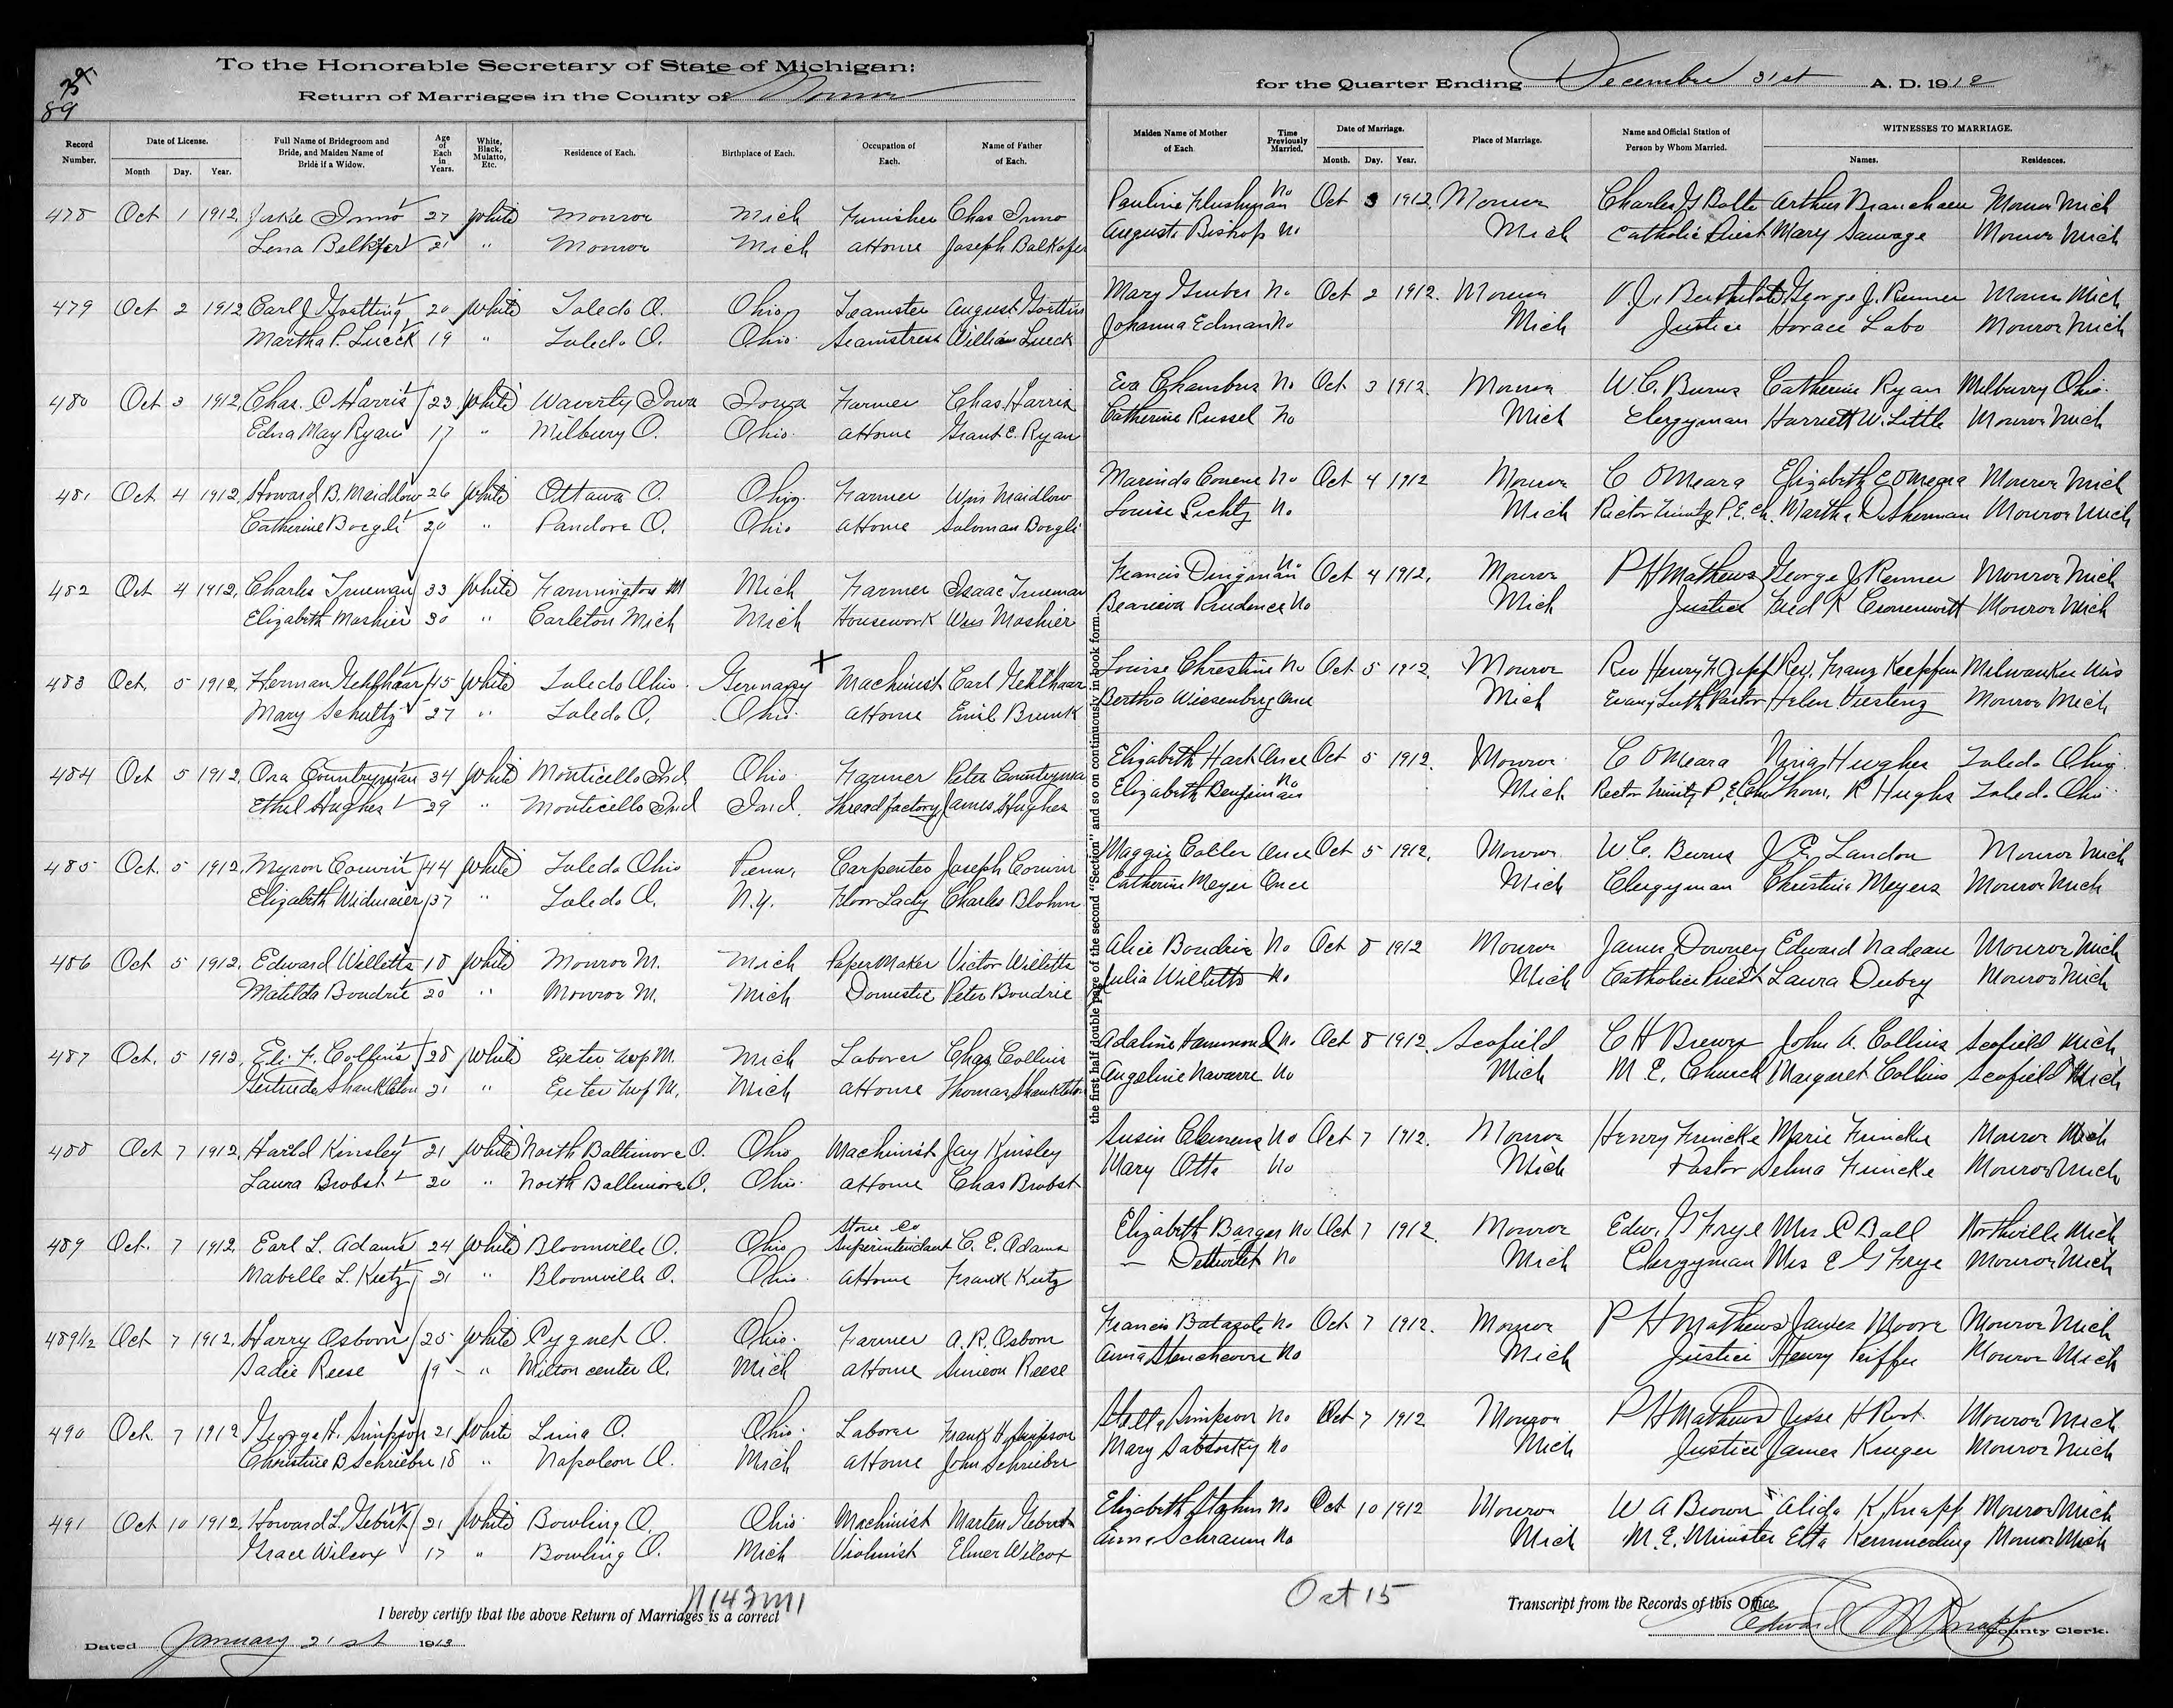 To the Honorable Secretary of State of Michigan:
Return of Marriages in the County of Monroe
for the Quarter Ending December 31st A. D. 1912
89
Record Number.
Date of License.
Month Day. Year.
Full Name of Bridegroom and Bride, and Maiden Name of Bride if a Widow.
Age of Each in Years.
White, Black, Mulatto, Etc.
Residence of Each.
Birthplace of Each.
Occupation of Each.
Name of Father of Each.
Maiden Name of Mother of Each
Time Previously Married.
Date of Marriage.
Month. Day. Year.
Place of Marriage.
Name and Official Station of Person by Whom Married.
WITNESSES TO MARRIAGE.
Names. Residences.
478 Oct 1 1912 27 White Monroe Mich Furnisher Chas Inmo Pauline No Oct 3 1912. Monroe Charles G Bolte Arthur Monroe Mich
Lena 21 " Monroe Mich at Home Joseph Augusta Bishop No Mich Catholic Priest Mary Sauvage Monroe Mich
479 Oct 2 1912 Carl J Goetting 20 White Toledo O. Ohio Teamster August Goetting Mary Gruber No Oct 2 1912. Monroe George J. Renner Monroe Mich
Martha P. Lueck 19 " Toledo O. Ohio Seamstress William Lueck Johanna Edman No Mich Justice Horace Labo Monroe Mich
480 Oct 3 1912 Chas. C Harris 23 White Waverly Iowa Iowa Farmer Chas Harris Eva Chambers No Oct 3 1912. Monroe W. C. Burns Catherine Ryan Milburry Ohio
Edna May Ryan 17 " Milbury O. Ohio at Home Grant E. Ryan Catherine Russel No Mich Clergyman Harriett W. Little Monroe Mich
481 Oct 4 1912 Howard B. Maidlow 26 White Ottawa O. Ohio Farmer Wm Maidlow Marinda No Oct 4 1912 Monroe C OMeara Elizabeth C OMeara Monroe Mich
Catherine Boegli 20 " Pandora O. Ohio at Home Soloman Boegli Louise Lichty No Mich Rector Trinity P. E. Ch. Martha Monroe Mich
482 Oct 4 1912 Charles Trueman 33 White Farmington M Mich Farmer Isaac Trueman Francis Dingman No Oct 4 1912. Monroe P H Mathews George J Renner Monroe Mich
Elizabeth Moshier 30 " Carleton Mich Mich Housework Wm Moshier Prudence No Mich Justice Fred K Cronenwett Monroe Mich
483 Oct. 5 1912 Herman Gehlhaar 45 White Toledo Ohio Germany X Machinist Carl Gehlhaar Louise Christine No Oct 5 1912. Monroe Rev Henry F Zapf Rev. Franz Milwaukee Wis
Mary Schultz 27 " Toledo O. Ohio at Home Emil Brunk Bertha Wiesenberg Once Mich Evang Luth Pastor Helen Viestenz Monroe Mich
484 Oct 5 1912 Ora Countryman 34 White Monticello Ind Ohio Farmer Peter Countryman Elizabeth Hart Once Oct 5 1912. Monroe C OMeara Nina Hughes Toledo Ohio
Ethel Hughes 29 " Monticello Ind Ind. Thread factory James Hughes Elizabeth Benjamin No Mich Rector Trinity P. E. Ch Thom. R Hughs Toledo Ohio
485 Oct. 5 1912. Myron Corwin 44 White Toledo Ohio Penn. Carpenter Joseph Corwin Maggie Coller Once Oct 5 1912. Monroe W. C. Burns J. E. Landon Monroe Mich
Elizabeth Widmaier 37 " Toledo O. N.Y. Floor Lady Charles Blohm Catherine Meyer Once Mich Clergyman Christina Meyers Monroe Mich
486 Oct 5 1912. Edward Willetts 18 White Monroe M. Mich Paper Maker Victor Willetts Alice Boudrie No Oct 8 1912 Monroe James Downey Edward Nadeau Monroe Mich
Matilda Boudrie 20 " Monroe M. Mich Domestic Peter Boudrie Julia Willetts No Mich Catholic Priest Laura Dubry Monroe Mich
487 Oct. 5 1912. Eli F. Collins 28 White Exeter twp M. Mich Laborer Chas Collins Adaline Hammond No Oct 8 1912. Scofield C H Brewer John A. Collins Scofield Mich
Gertrude 21 " Exeter twp M. Mich at Home Thomas Angeline Navarre No Mich M. E. Church Margaret Collins Scofield Mich
488 Oct 7 1912. Harold Kinsley 21 White North Baltimore O. Ohio Machinist Jay Kinsley Susin Clemens No Oct 7 1912. Monroe Henry Frincke Marie Frincke Monroe Mich
Laura Brobst 20 " North Baltimore O. Ohio at Home Chas Brobst Mary Otto No Mich Pastor Selma Frincke Monroe Mich
489 Oct. 7 1912 Earl L. Adams 24 White Bloomville O. Ohio Stone Co Superintendent C. E. Adams Elizabeth Barger No Oct 7 1912. Monroe Edw. G Frye Mrs C Ball Northville Mich
Mabelle L. Kutz 21 " Bloomville O. Ohio at Home Frank Kutz — No Mich Clergyman Mrs E G Frye Monroe Mich
489 1/2 Oct 7 1912. Harry Osborn 25 White Cygnet O. Ohio Farmer A. R. Osborn Francis No Oct 7 1912. Monroe P H Mathews James Moore Monroe Mich
Sadie Reese 19 " Milton center O. Mich at Home Simeon Reese Anna No Mich Justice Henry Peiffer Monroe Mich
490 Oct. 7 1912 George H. Simpson 21 White Lima O. Ohio Laborer Frank H Simpson Simpson No Oct 7 1912 Monroe P H Mathews Jesse H Root Monroe Mich
Christine B Schrieber 18 " Napoleon O. Mich at Home John Schrieber Mary No Mich Justice James Kruger Monroe Mich
491 Oct 10 1912 Howard L. Gebert 21 White Bowling O. Ohio Machinist Marten Gebert Elizabeth No Oct 10 1912 Monroe W A Brown Alida K. Knapp Monroe Mich
Grace Wilcox 17 " Bowling O. Mich Violinist Elmer Wilcox Anna Schramm No Mich M. E. Minister Etta Kemmerling Monroe Mich
the first half double page of the second "Section" and so on continuously in book form.
Oct 15
I hereby certify that the above Return of Marriages is a correct
Transcript from the Records of this Office.
Dated January 21st 1913
Edward M Knapp County Clerk.